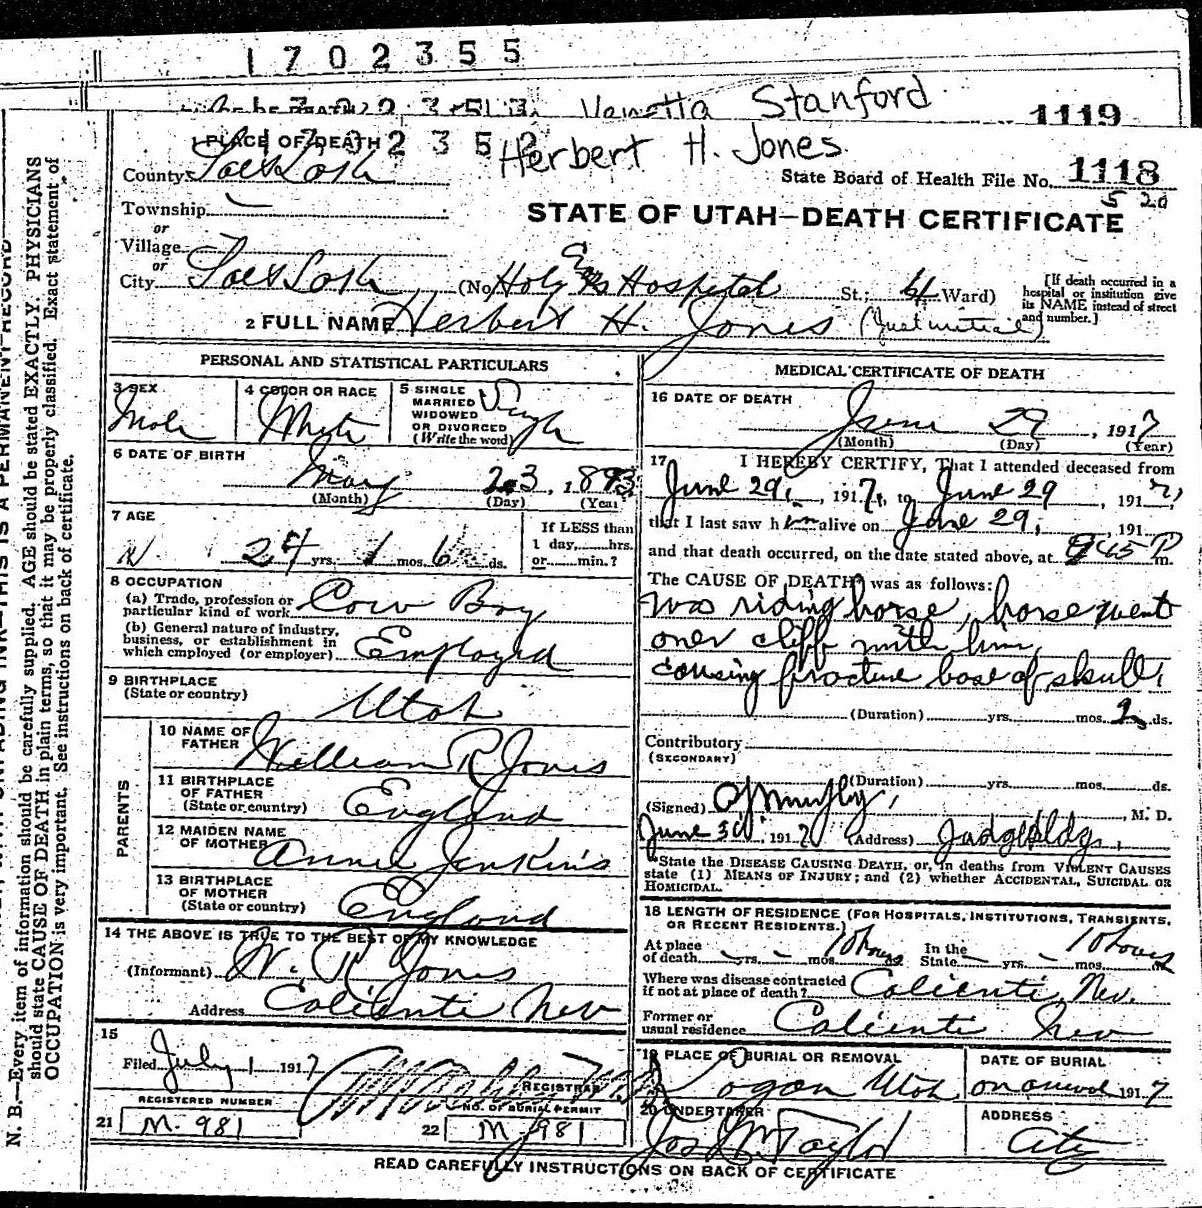 1702355
Venetta Stanford
1119
1 PLACE OF DEATH 2 3 5 2
Herbert H. Jones.
County Salt Lake
State Board of Health File No. 1118
5 20
Township
or
STATE OF UTAH—DEATH CERTIFICATE
Village
or
City Salt Lake (No. Holy Cross Hospital St.; 4 Ward)
[If death occurred in a
hospital or institution give
its NAME instead of street
and number.]
2 FULL NAME Herbert H. Jones
PERSONAL AND STATISTICAL PARTICULARS
3 SEX
Male
4 COLOR OR RACE
White
5 SINGLE
MARRIED
WIDOWED
OR DIVORCED
(Write the word)
Single
6 DATE OF BIRTH
May 23, 1893
(Month) (Day) (Year)
7 AGE
24 yrs. 1 mos. 6 ds.
If LESS than
1 day, hrs.
or min.?
8 OCCUPATION
(a) Trade, profession or
particular kind of work Cow Boy
(b) General nature of industry,
business, or establishment in
which employed (or employer) Employed
9 BIRTHPLACE
(State or country)
Utah
PARENTS
10 NAME OF
FATHER William R Jones
11 BIRTHPLACE
OF FATHER
(State or country) England
12 MAIDEN NAME
OF MOTHER Annie Jenkins
13 BIRTHPLACE
OF MOTHER
(State or country) England
14 THE ABOVE IS TRUE TO THE BEST OF MY KNOWLEDGE
(Informant) W. R. Jones
Address Caliente Nev
15
Filed July 1 1917
REGISTRAR
REGISTERED NUMBER
21 M-981
NO. OF BURIAL PERMIT
22 M 981
MEDICAL CERTIFICATE OF DEATH
16 DATE OF DEATH
June 29, 1917
(Month) (Day) (Year)
17 I HEREBY CERTIFY, That I attended deceased from
June 29, 1917, to June 29, 1917,
that I last saw him alive on June 29, 191
and that death occurred, on the date stated above, at 945 P m.
The CAUSE OF DEATH was as follows:
Was riding horse, horse went
over cliff with him,
causing fracture base of skull.
(Duration) yrs. mos. 2 ds.
Contributory
(SECONDARY)
(Duration) yrs. mos. ds.
(Signed) M. D.
June 30, 1917 (Address) Judge Bldg.,
*State the DISEASE CAUSING DEATH, or, in deaths from VIOLENT CAUSES
state (1) MEANS OF INJURY; and (2) whether ACCIDENTAL, SUICIDAL OR
HOMICIDAL.
18 LENGTH OF RESIDENCE (FOR HOSPITALS, INSTITUTIONS, TRANSIENTS,
OR RECENT RESIDENTS.)
At place
of death yrs. mos. 10 hours
In the
State yrs. mos. 10 hours
Where was disease contracted
if not at place of death? Caliente, Nev.
Former or
usual residence Caliente Nev
19 PLACE OF BURIAL OR REMOVAL
Logan Utah
DATE OF BURIAL
on arrival 1917
20 UNDERTAKER
Jos Wm Taylor
ADDRESS
City
READ CAREFULLY INSTRUCTIONS ON BACK OF CERTIFICATE
N. B.—Every item of information should be carefully supplied. AGE should be stated EXACTLY. PHYSICIANS
should state CAUSE OF DEATH in plain terms, so that it may be properly classified. Exact statement of
OCCUPATION is very important. See instructions on back of certificate.